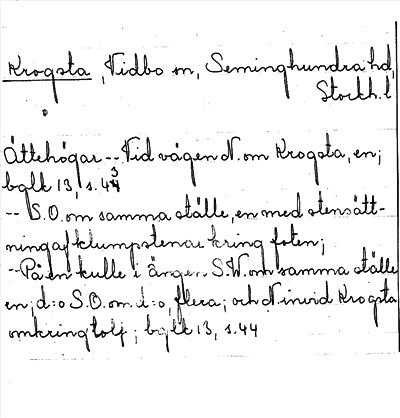 Krogsta, Vidbo sn, Seminghundra hd,
Stockh. l
Ättehögar -- Vid vägen N. om Krogsta, en;
bglk 13, s. 43
-- S.O. om samma ställe, en med stensätt-
ning af klumpstenar kring foten;
-- På en kulle i ängen S.W. om samma ställe
en; d:o S.O. om d:o, flera; och N invid Krogsta
omkring tolf; bglk 13, s. 44